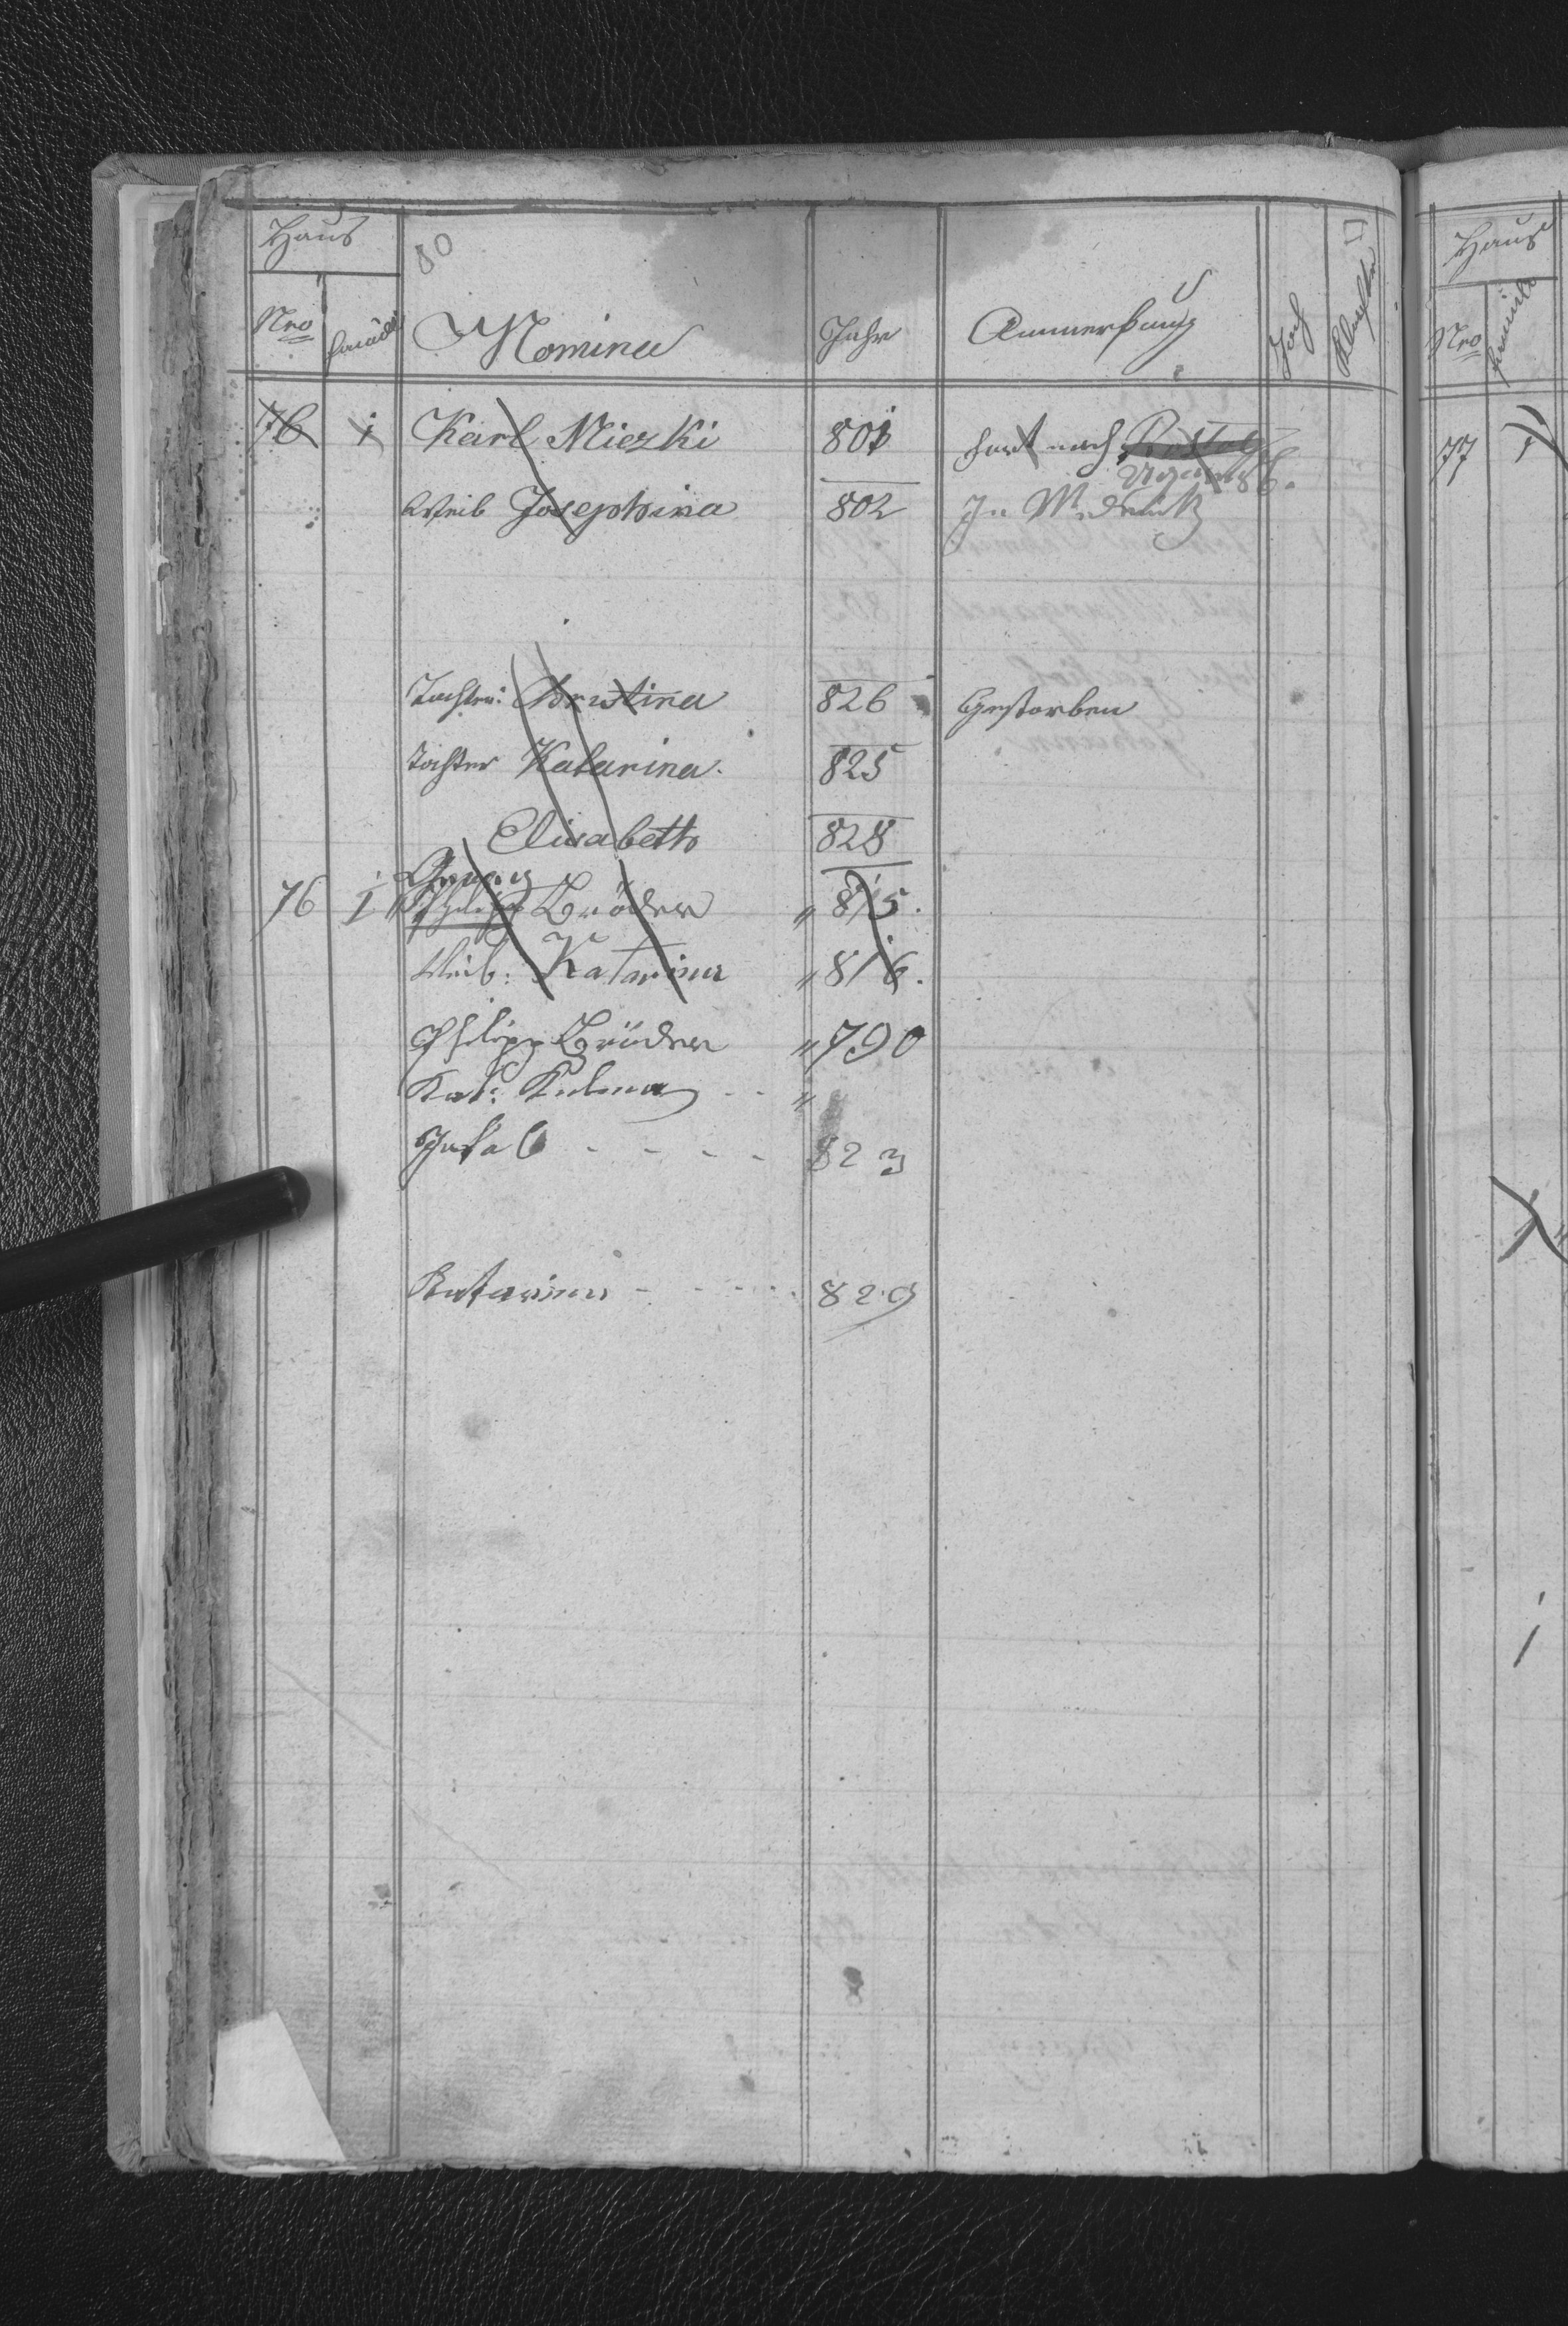 Haus
80
Nro
Familie
Nomina
Jahr
Anmerkung
Joch
76 1 Karl Miezki 801 fort nach
Weib Josephina 802 In
Tochter: Christina 826 Gestorben
Tochter Katarina. 825
Elisabeth 828
76 1 Philipp Bröder „ 815.
Weib: Katarina „ 816.
Philipp Bröder „ 790
Kat: „
Jakob - - - - 823
Katarina - - - - 829
Haus
Nro
Familie
77 1
1
1